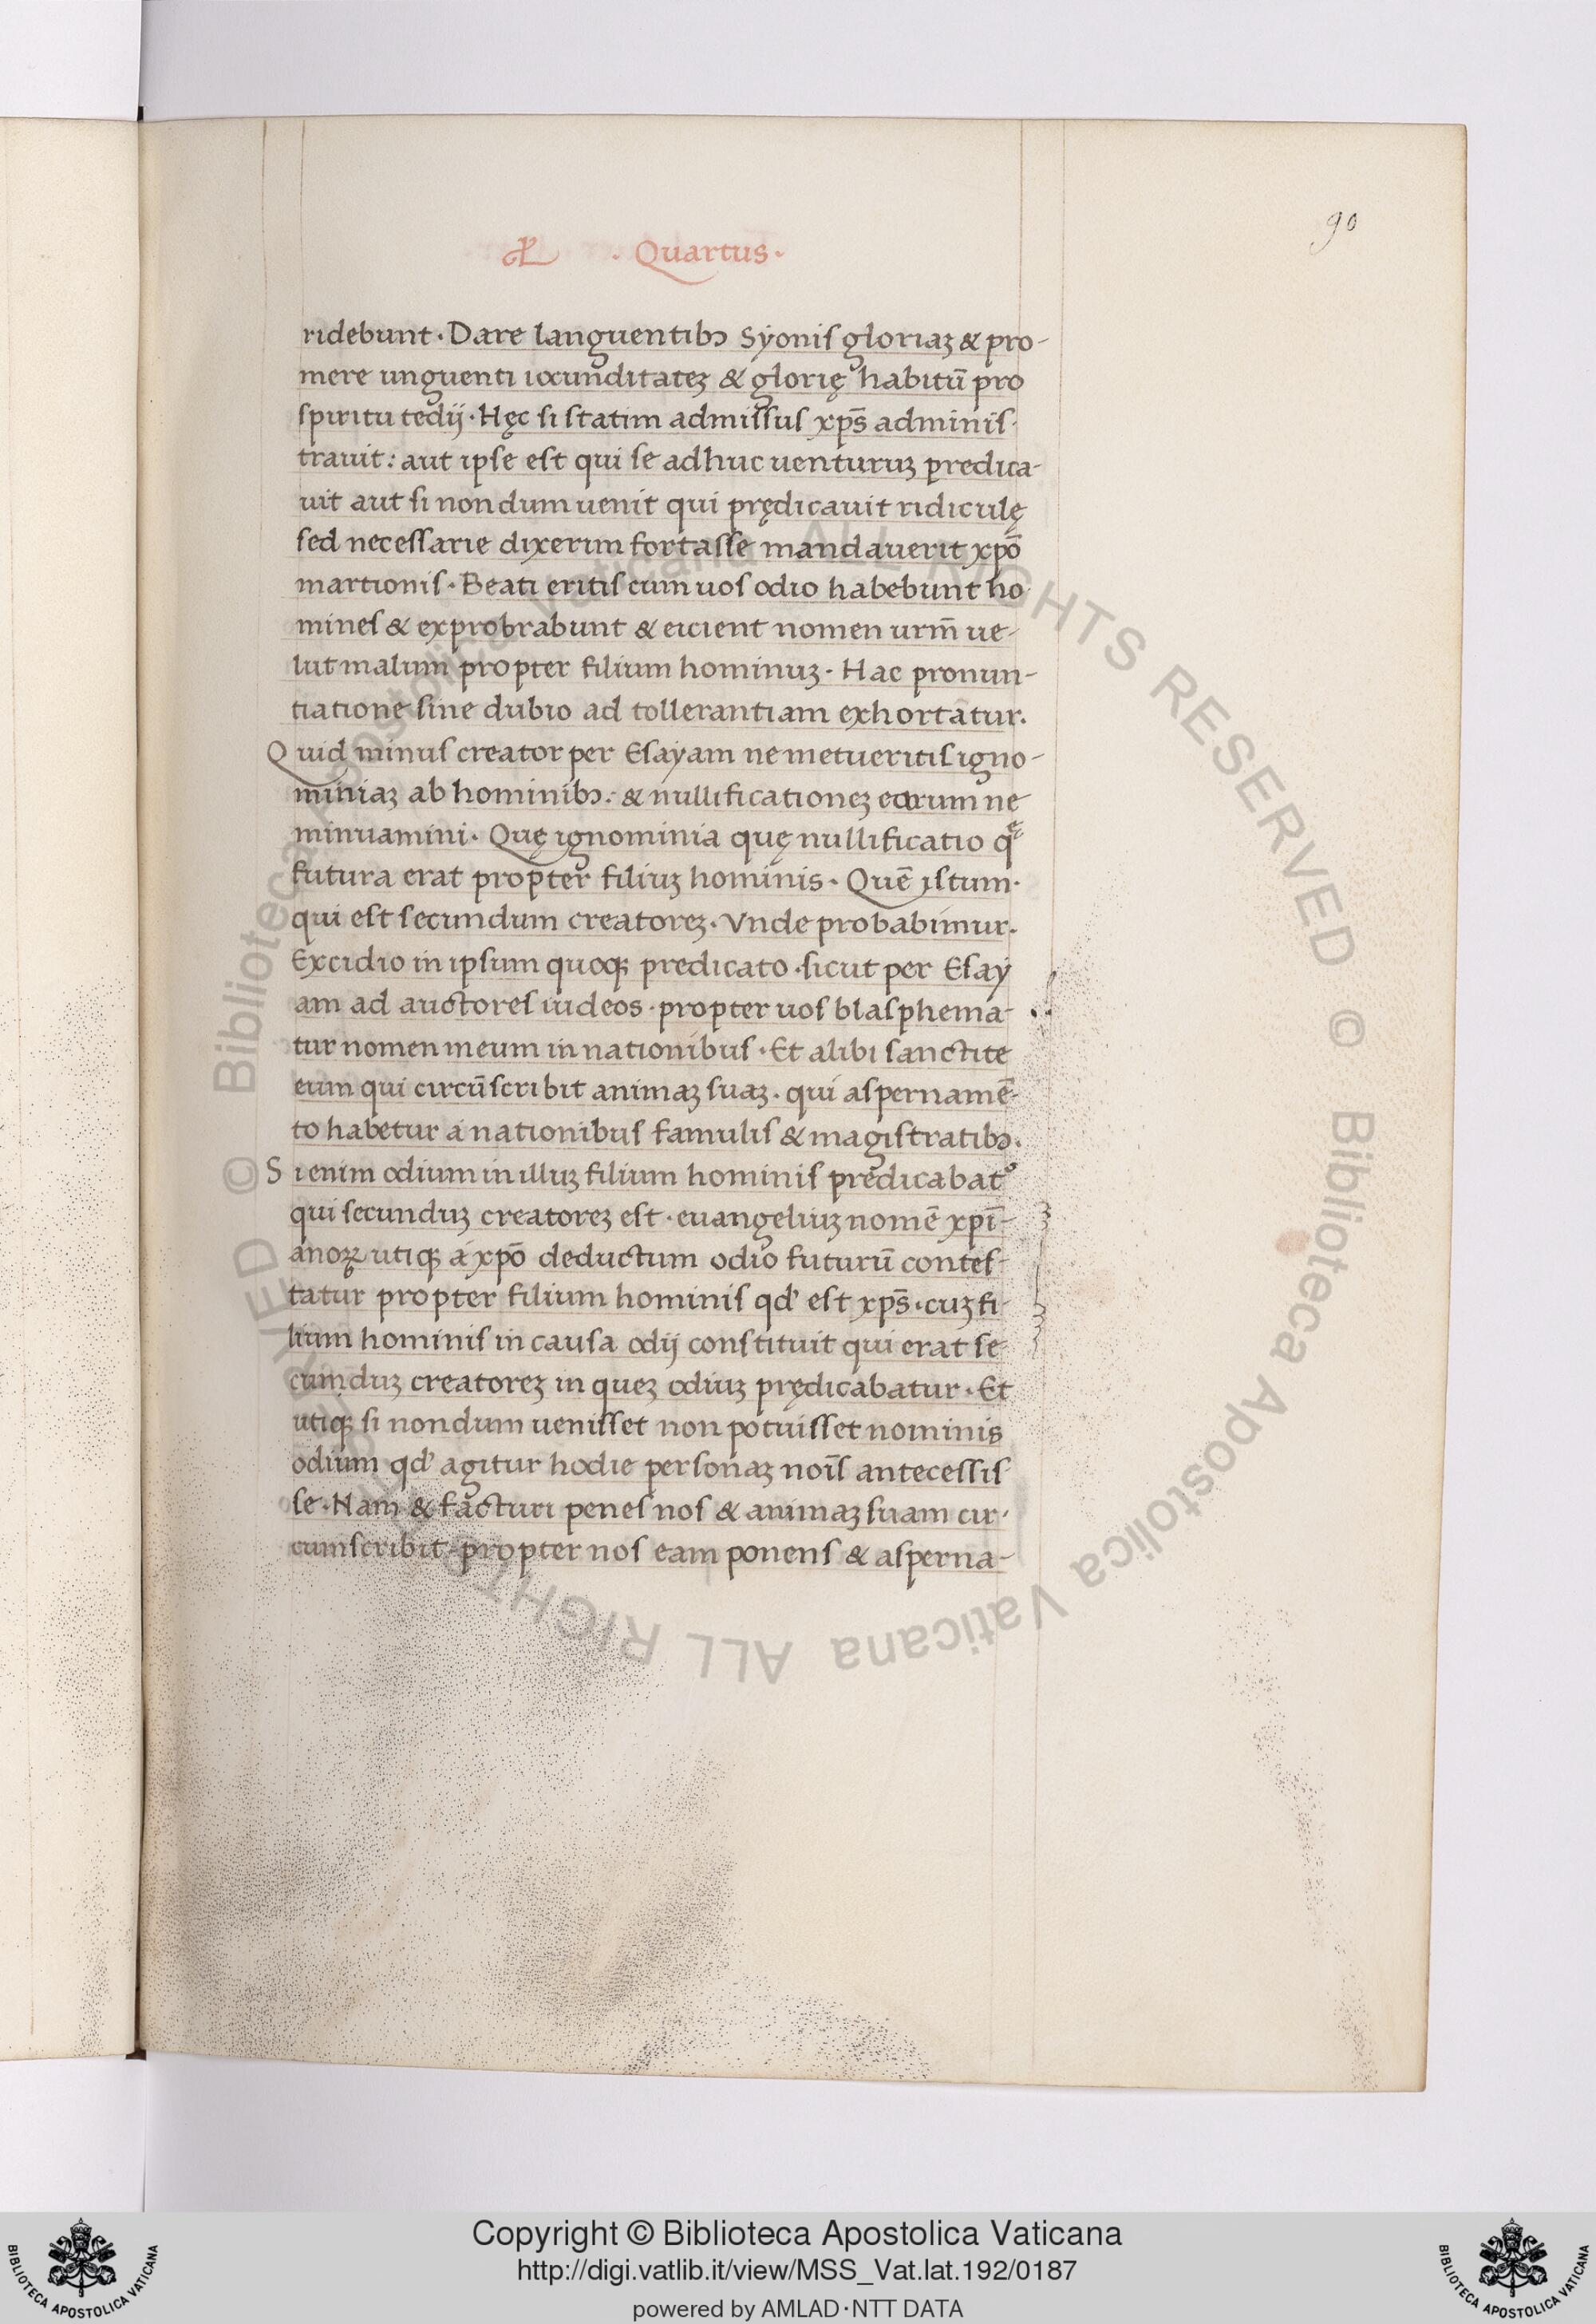 90
· Quartus ·
ridebunt · Dare languentibꝫ Syonis gloriaꝫ & pro-
mere unguenti iocunditateꝫ & glorię habitū pro
spiritu tedij · Hęc si statim admissus xp̄s adminis-
trauit: aut ipse est qui se adhuc uenturuꝫ predica-
uit aut si nondum uenit qui prędicauit ridiculę
sed necessarie dixerim fortasse mandauerit xp̄o
martionis · Beati eritis cum uos odio habebunt ho
mines & exprobrabunt & eicient nomen urm̄ ue-
lut malum propter filium hominuꝫ · Hac pronun-
tiatione sine dubio ad tollerantiam exhortatur.
Quid minus creator per Esayam ne metueritis igno-
miniaꝫ ab hominibꝫ: & nullificationeꝫ eorum ne
minuamini · Quę ignominia quę nullificatio qę
futura erat propter filiuꝫ hominis · Quē istum·
qui est secundum creatoreꝫ · Vnde probabimur.
Excidio in ipsum quoqꝫ predicato · sicut per Esay
am ad auctores iudeos · propter uos blasphema-
tur nomen meum in nationibus · Et alibi sanctite
eum qui circūscribit animaꝫ suaꝫ · qui aspernamē-
to habetur a nationibus famulis & magistratibꝫ.
Si enim odium in illuꝫ filium hominis predicabat᷒
qui secunduꝫ creatoreꝫ est · euangeliuꝫ nomē xpī-
anoꝝ utiqꝫ a xp̄o deductum odio futurū contes-
tatur propter filium hominis qd' est xp̄s · cuꝫ fi-
lium hominis in causa odij constituit qui erat se-
cunduꝫ creatoreꝫ in queꝫ odiuꝫ prędicabatur · Et
utiqꝫ si nondum uenisset non potuisset nominis
odium qd' agitur hodie personaꝫ noīs antecessis
se · Nam & facturi penes nos & animaꝫ suam cir-
cumscribit · propter nos eam ponens & asperna-
© Biblioteca Apostolica Vaticana ALL RIGHTS RESERVED © Biblioteca Apostolica Vaticana ALL RIGHTS RESERVED
Copyright © Biblioteca Apostolica Vaticana
http://digi.vatlib.it/view/MSS_Vat.lat.192/0187
powered by AMLAD·NTT DATA
BIBLIOTECA APOSTOLICA VATICANA
BIBLIOTECA APOSTOLICA VATICANA